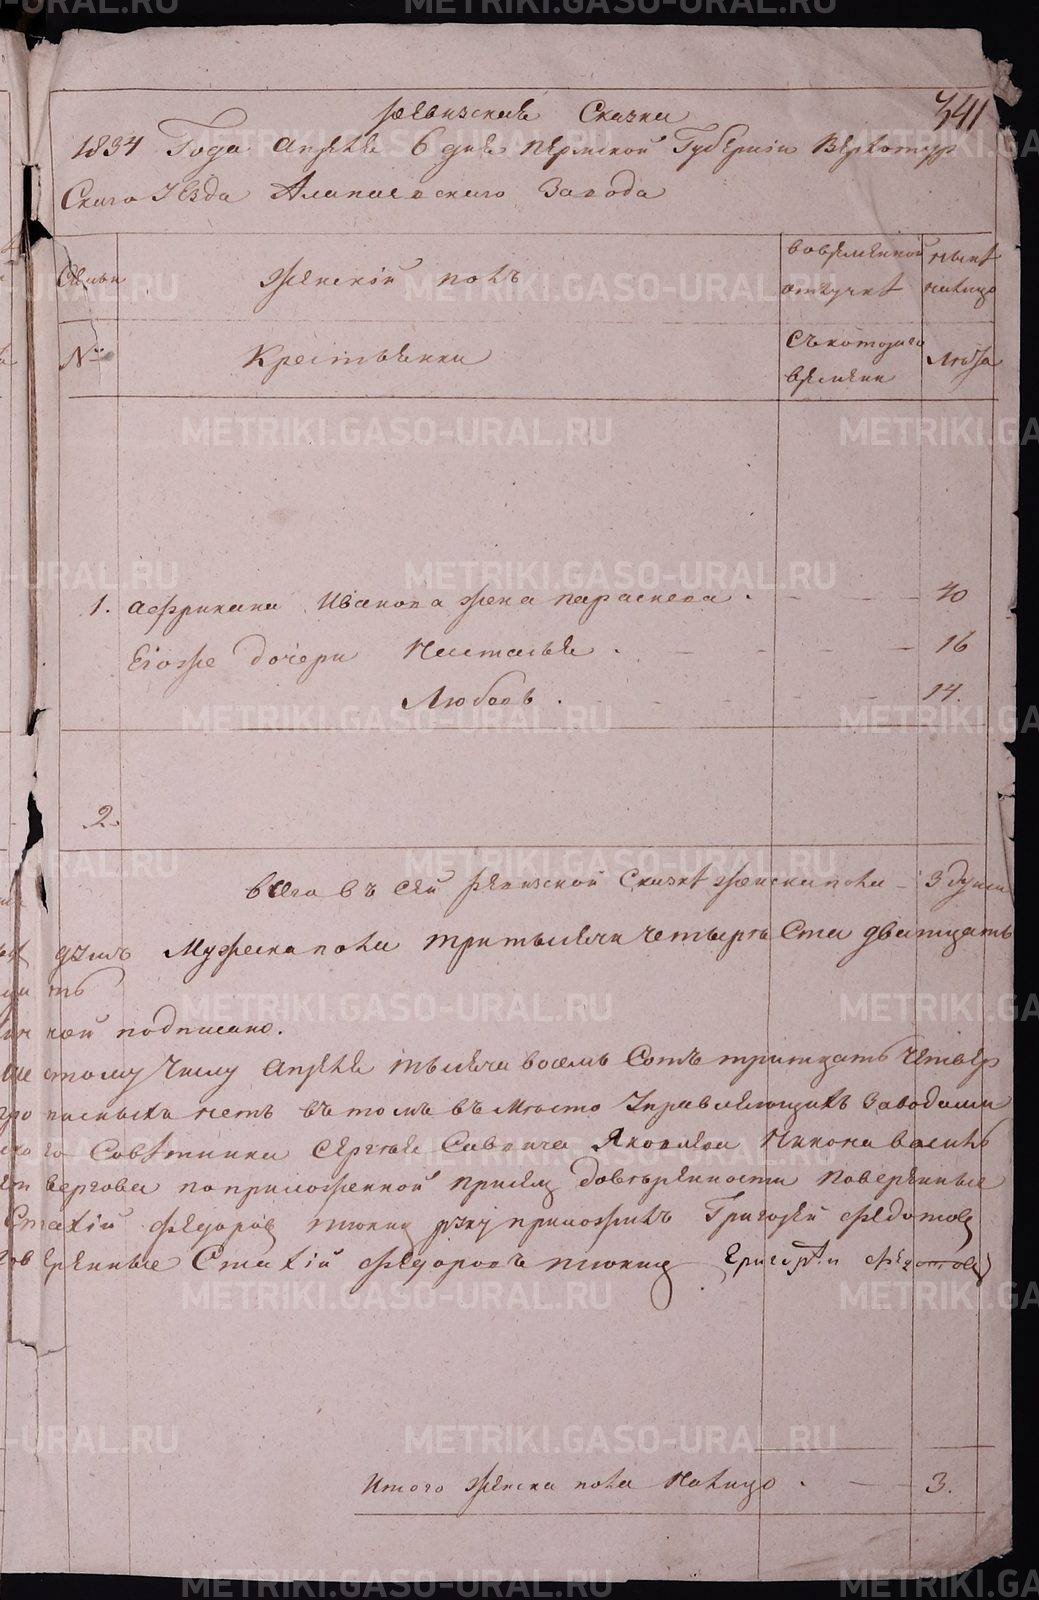 341
Ревизская Сказка
1834 Года Апреля 6 дня Пермской Губернии Верхотур
Скаго Уезда Алапаевскаго Завода
Семьи
Женскій полъ
вовремянной отлучкѣ
нынѣ налицо
№
Крестьянки
Съкотораго времяни
Лѣта
1. Африкана Иванова жена параскева. 40
Егожѣ дочери Насталья. 16
Любовь. 14.
2.
всего въ сей ревизской сказкѣ женска пола 3 души
душъ Мужеска пола три тысячи четыреста Ста дватцать
ть
ной подписано.
стому числу Апреля тысяча восемь Сотъ тритцать четвер
писныхъ нетъ въ томъ въместо Управляющихъ Заводами
го Совѣтника Сергея Савича Яковлева
поприложенной присемъ довѣренности поверенные
Стахій Федоровъ руку приложилъ Григорей Федотовъ
еренные Стахій Федоровъ Григорѣй Федотовъ
Итого женска пола налицо. 3.
METRIKI.GASO-URAL.RU